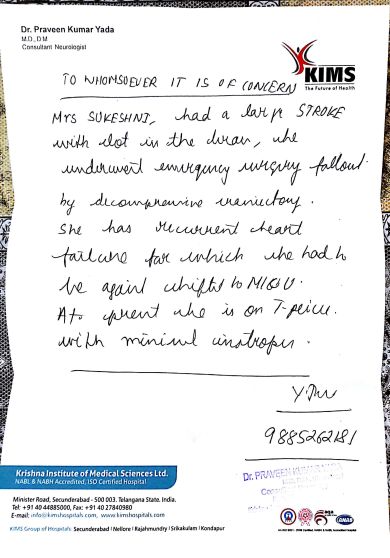 Dr. Praveen Kumar Yada
M.D., D M
Consultant Neurologist
KIMS
The Future of Health
TO WHOMSOEVER IT IS OF CONCERN
Mrs SUKESHNI, had a large STROKE
with clot in the brain, she
underwent emergency surgery followed
by decompressive craniectomy.
She has recurrent heart
failure for which she had to
be again shifted to MICU
At present she is on T-piece
with minimal inotropes.
9885262181
Krishna Institute of Medical Sciences Ltd.
NABL & NABH Accredited, ISO Certified Hospital
Dr. PRAVEEN KUMAR
Minister Road, Secunderabad - 500 003. Telangana State, India.
Tel: +91 40 44885000, Fax: +91 40 27840980
E-mail: info@kimshospitals.com, www.kimshospitals.com
KIMS Group of Hospitals: Secunderabad | Nellore | Rajahmundry | Srikakulam | Kondapur